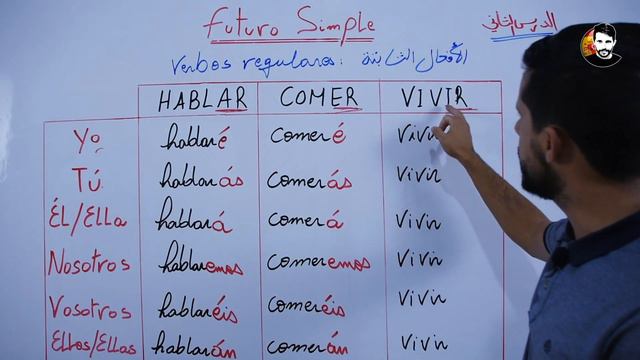 Futuro Simple الدرس الثاني
Verbos regulares: الأفعال الثابتة
HABLAR COMER VIVIR
Yo hablaré comeré vivir
Tú hablarás comerás vivir
Él/Ella hablará comerá vivir
Nosotros hablaremos comeremos vivir
Vosotros hablaréis comeréis vivir
Ellos/Ellas hablarán comerán vivir